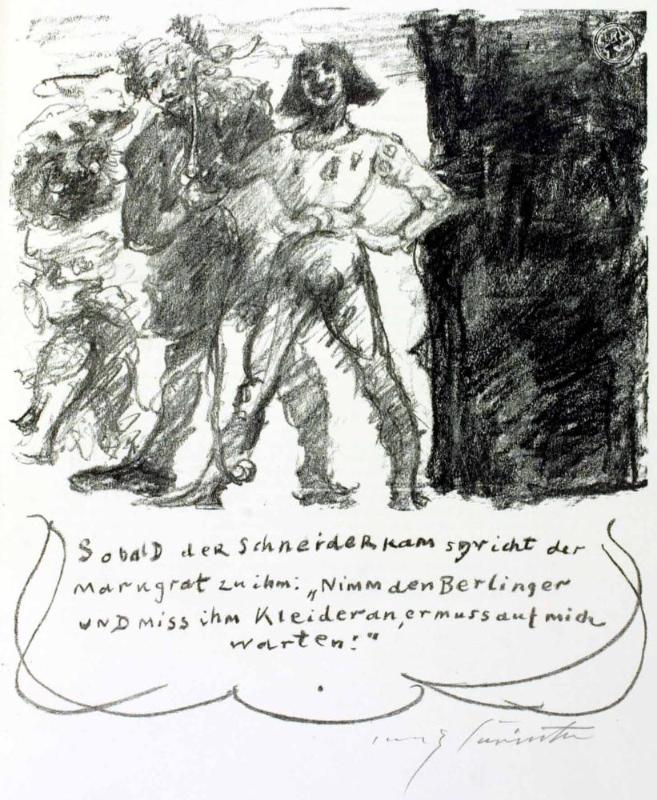 Sobald der Schneider kam spricht der
Markgraf zu ihm: „Nimm den Berlinger
und miss ihm Kleider an, er muss auf mich
warten!“